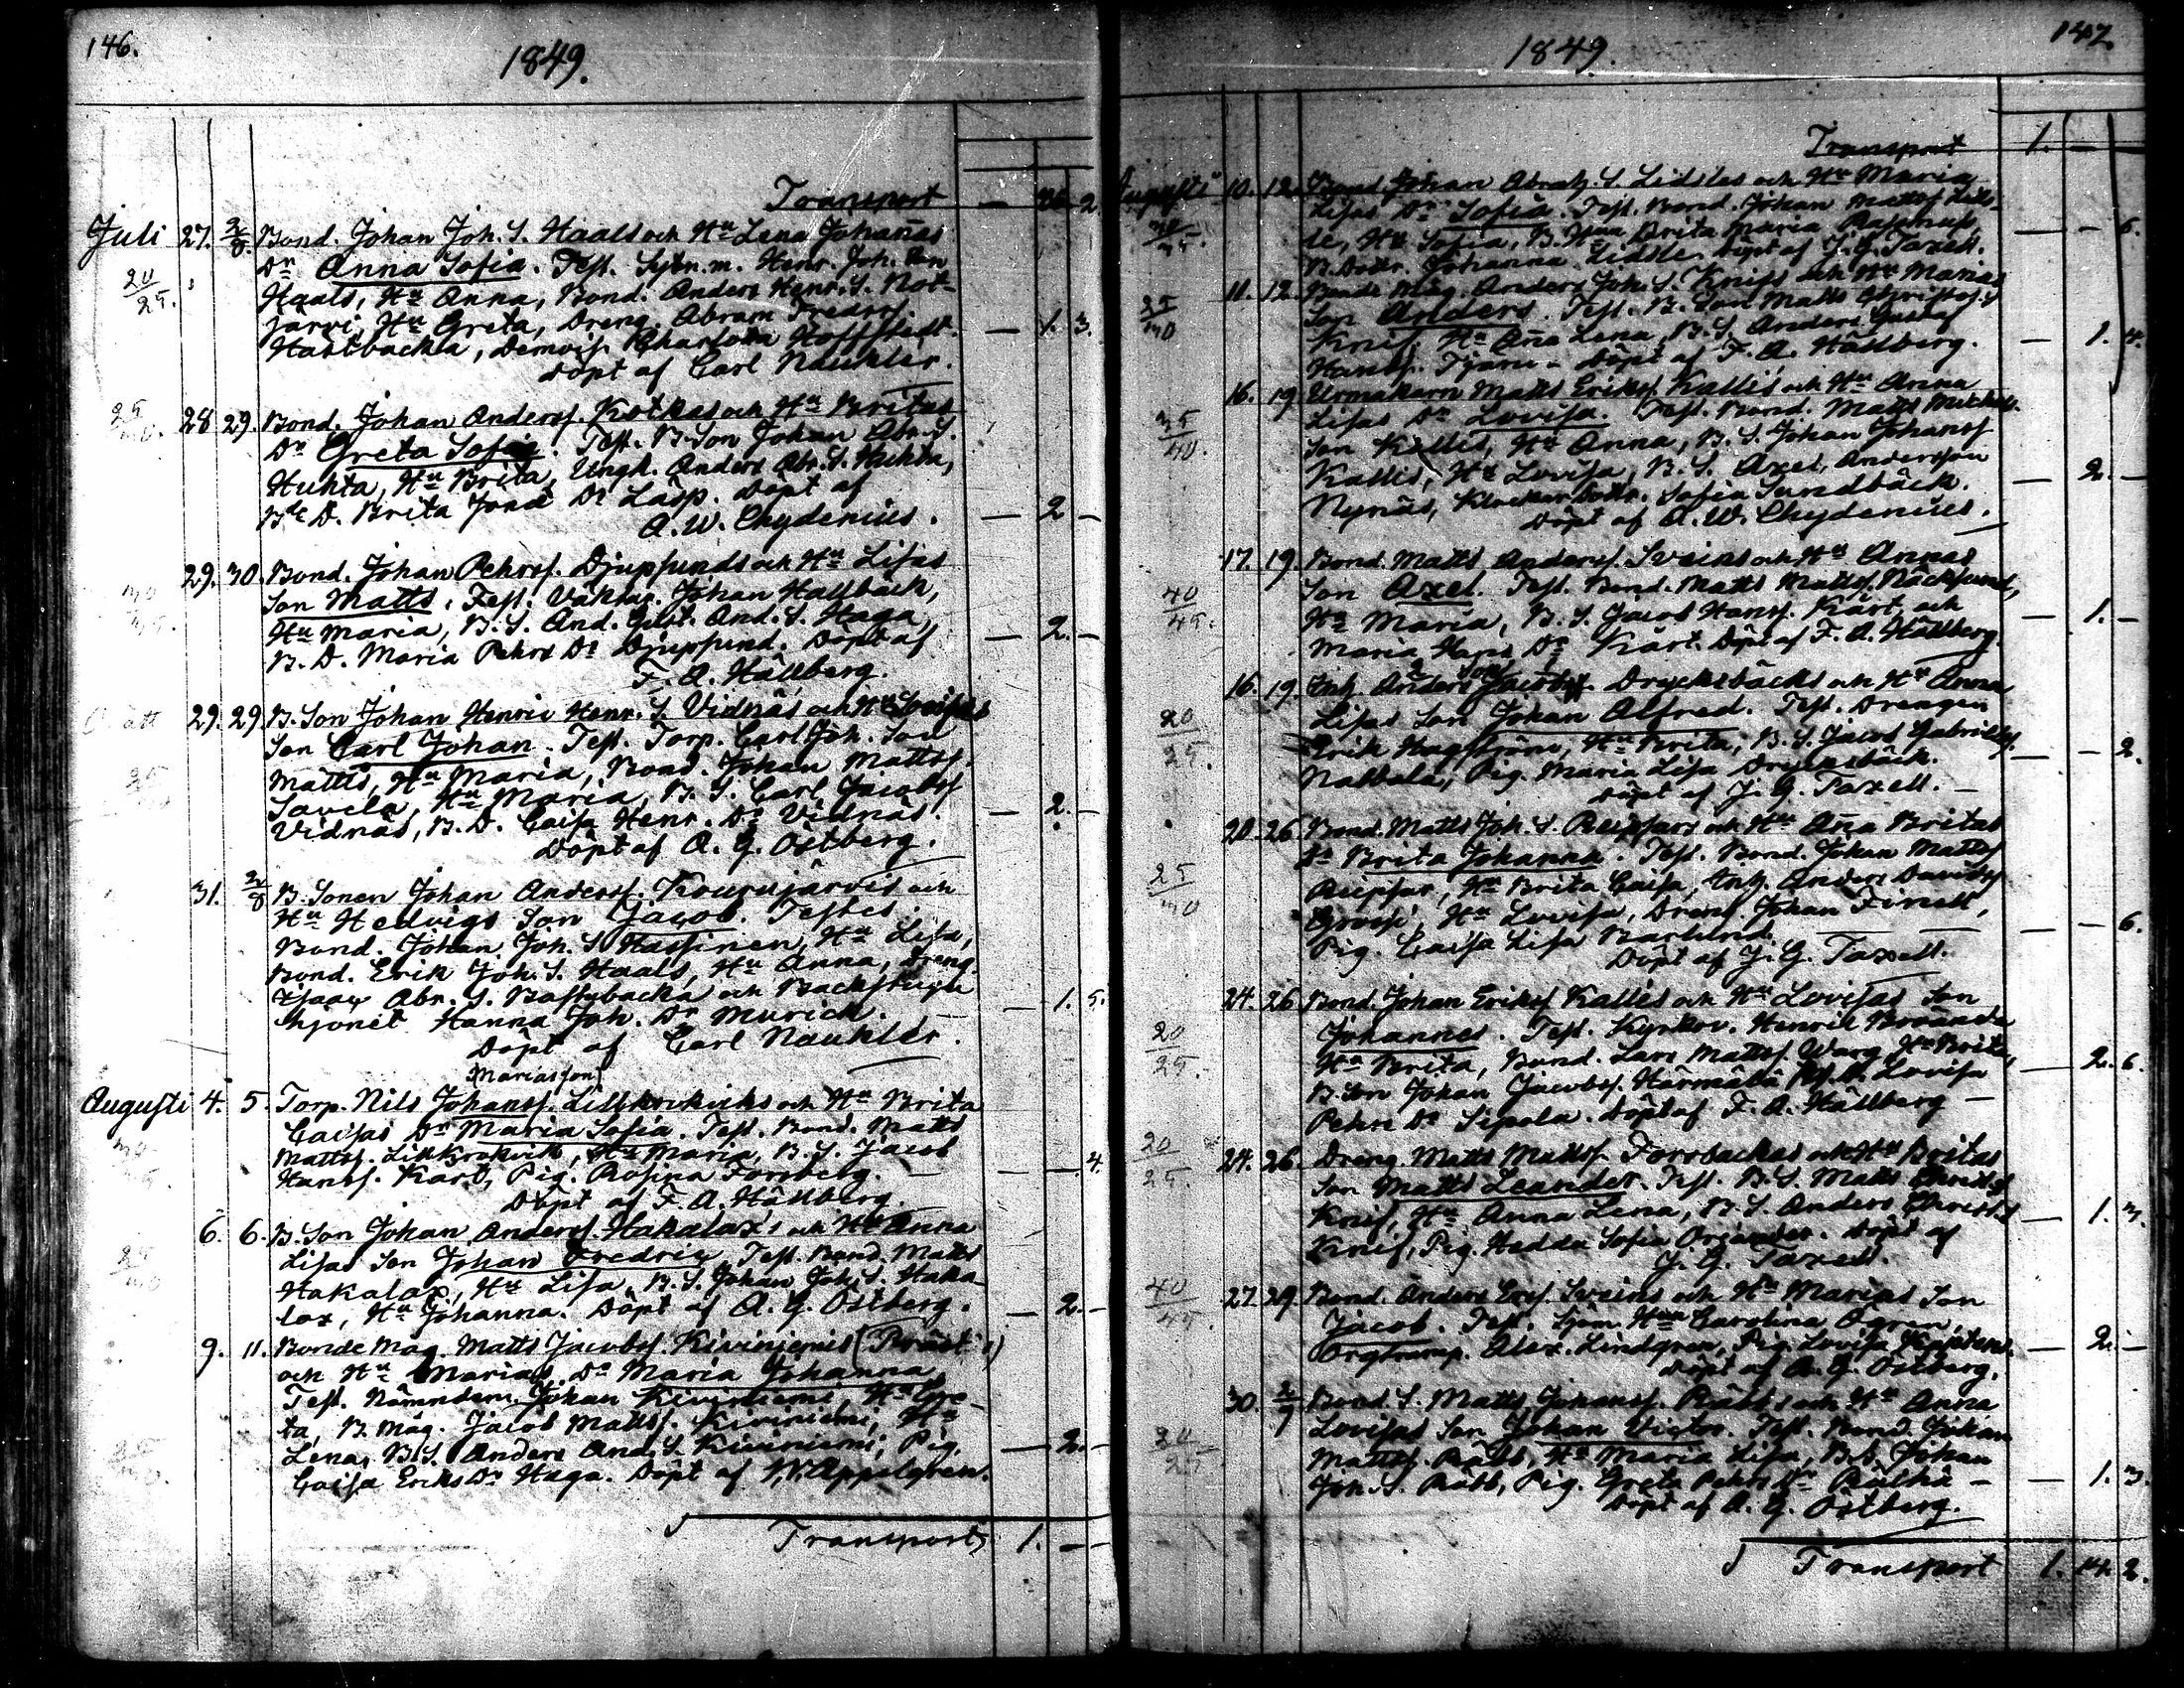 146.
1849.
Transport — 2
Juli 27. 2/8. Bond. Johan Joh. S. Haals och Hu Lena Johañas
20/25. Dr Anna Sofia. Test. Henr. Joh. Son
Haals, Hu Anna, Bond. Anders Henr. S.
järvi, Hu Greta, Dreng Abram Fredrs.
Hastbacka, Demois. Charlotta Hoffstedt. — 1. 3.
döpt af Carl Naukler.
25 28 29. Bond. Johan Anderss. Kotkas och Hu Britas
Dr Greta Sofia. Test. B. Son Johan Abr. S.
Huhta, Hu Brita, Ungk. Anders Abr. S. Huhta,
Bde D. Brita Dr döpt af
A. W. Chydenius. — 2 —
29. 30. Bond. Johan Pehrss. Djupsunds och Hu Lisas
Son Matts. Test. Johan Hallbäck,
Hu Maria, B. S. And. Gust. And. S. Haga, — 2. —
B. D. Maria Pehrs Dr Djupsund. Döpt af
F. A. Hällberg.
29. 29. B. Son Johan Henric Henr. S. Vidnäs och Hu Lovisas
Son Carl Johan. Test. Torp. Carl Joh. Son
Mattis, Hu Maria, Bond. Johan Mattss.
Savela, Hu Maria, B. S. Carl Jacobss
Vidnäs, B. D. Caisa Henr. Dr Vidnäs. — 2. —
Döpt af A. G. Östberg.
31. 2/8 B. Sonen Johan Anderss. Kourujärvis och
Hu Hedvigs Son Jacob. Testes:
Bond. Johan Joh. S. Hassinen, Hu Lisa,
Bond. Erik Joh. S. Haals, Hu Anna, Dreng.
Isaac Abr. S. Bastubacka och Backstugu
hjonet Hanna Joh. Dr Murick. — 1. 5.
Döpt af Carl Naukler.
Mariasson
Augusti 4. 5. Torp. Nils Johanss. och Hu Brita
Caisas Dr Maria Sofia. Test. Bond. Matts
Mattss. Hu Maria, B. S. Jacob
Hanss. Kärt, Pig. Rosina Forsberg. — — 4.
Döpt af F. A. Hällberg.
6. 6. B. Son Johan Anderss. Hakalax's och Hu Anna
Lisas Son Johan Fredric. Test. Bond. Matts
Hakalax, Hu Lisa, B. S. Johan Joh. S. Haka-
lax, Hu Johanna. Döpt af A. G. Östberg. — 2. —
9. 11. Bonde Måg. Matts Jacobss. Kiviniemis
och Hu Marias Dr Maria Johanna
Test. Nämndem. Johan Kiviniemi, Hu Gre-
ta, B. Måg. Jacob Mattss. Kiviniemi, Hu
Lena, B. S. Anders And. S. Kiviniemi, Pig. — 2. —
Caisa Eriks Dr Haga. Döpt af W. Appelgren.
Transport, 1. — —
1849.
147.
Transport 1. — —
Augusti 10. 12. Bond. Johan Abrah. S. Lidsles och Hu Maria
30/35. Lisas Dr Sofia. Test. Bond. Johan Mattss Lids-
le, Hu Sofia, B. Hu Brita Maria — — 6.
B. Dottr. Johanna Lidsle. Döpt af J. G. Taxell.
11. 12. Bonde Måg. Anders Joh. S. Knifs och Hu Marias
Son Anders. Test. B. Son Matts
Knif, Hu Aña Lena, B. S. Anders Gustaf
Hanss. Tjäru — Döpt af F. A. Hällberg. — 1. 4.
16. 19 Urmakarn Matts Erikss. Kallis och Hu Anna
35/40. Lisas Dr Lovisa. Test. Bond. Matts Michels-
Son Kallis, Hu Anna, B. S. Johan Johanss
Kallis, Hu Lovisa, B. S. Axel Andersson
Nynäs, Klockar Dottr. Sofia Sundbäck. — 2. —
Döpt af A. W. Chydenius.
17. 19 Bond. Matts Anderss. Sveins och Hu Annas
40/45. Son Axel. Test. Bond. Matts Mattss. Näcksund,
Hu Maria, B. S. Jacob Hanss. Kärt och — 1. —
Maria Hans Dr Kärt. Döpt af F. A. Hällberg.
16. 19. Inh. Anders Drycksbäcks och Hu Anna
20/25. Lisas Son Johan Alfred. Test. Drengen
Erik Hagström, Hu Brita, B. S. Jacob Gabrielss.
Nabbala, Pig. Maria Lisa Drycksbäck. — — 2.
Döpt af J. G. Taxell. —
20 26 Bond. Matts Joh. S. Peipsars och Hu Aña Britas
25/30 Dr Brita Johanna. Test. Bond. Johan Mattss
Peipsar, Hu Brita Caisa, Inh. Anders Davidss
Hu Lovisa, Dreng. Johan Finell,
Pig. Caisa Lisa Barklund. — — 6.
Döpt af J. G. Taxell.
24. 26 Bond. Johan Erikss Kallis och Hu Lovisas Son
20/25. Johannes. Test. Kyrkov. Henric
Hu Brita, Bond. Lars Mattss. Warg, Hu Brita,
B. Son Johan Jacobss. Härmälä, B. D. Lovisa — 2. 6
Pehrs Dr Sipola. Döpt af F. A. Hällberg —
20/25. 24. 26. Dreng. Matts Mattss Forsbackas och Hu Britas
Son Matts Leander. Test. B. S. Matts
Knif, Hu Anna Lena, B. S. Anders — 1. 3.
Knif, Pig. Hedda Sofia Döpt af
J. G. Taxell.
40/45. 27. 29 Bond. Anders Sveins och Hu Marias Son
Jacob. Test. Sjöm. Hu Carolina Ögren,
Orgtramp. Alex. Lindgren, Pig. Lovisa — 2. —
Döpt af A. G. Östberg.
30. 2/9 Bond. S. Matts Johanss. Räbbs och Hu Anna
20/25 Lovisas Son Johan Victor. Test. Bond. Johan
Mattss. Räbb, Hu Maria Lisa, B. S. Johan
Joh. S. Räbb, Pig. Greta Pehrs Dr — 1. 3.
Döpt af A. G. Östberg.
Transport 1. 14. 2.